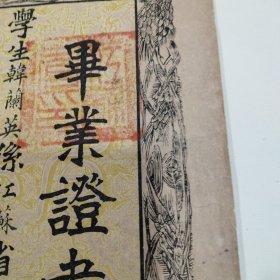 畢業證書
學生韓蘭英係江蘇省